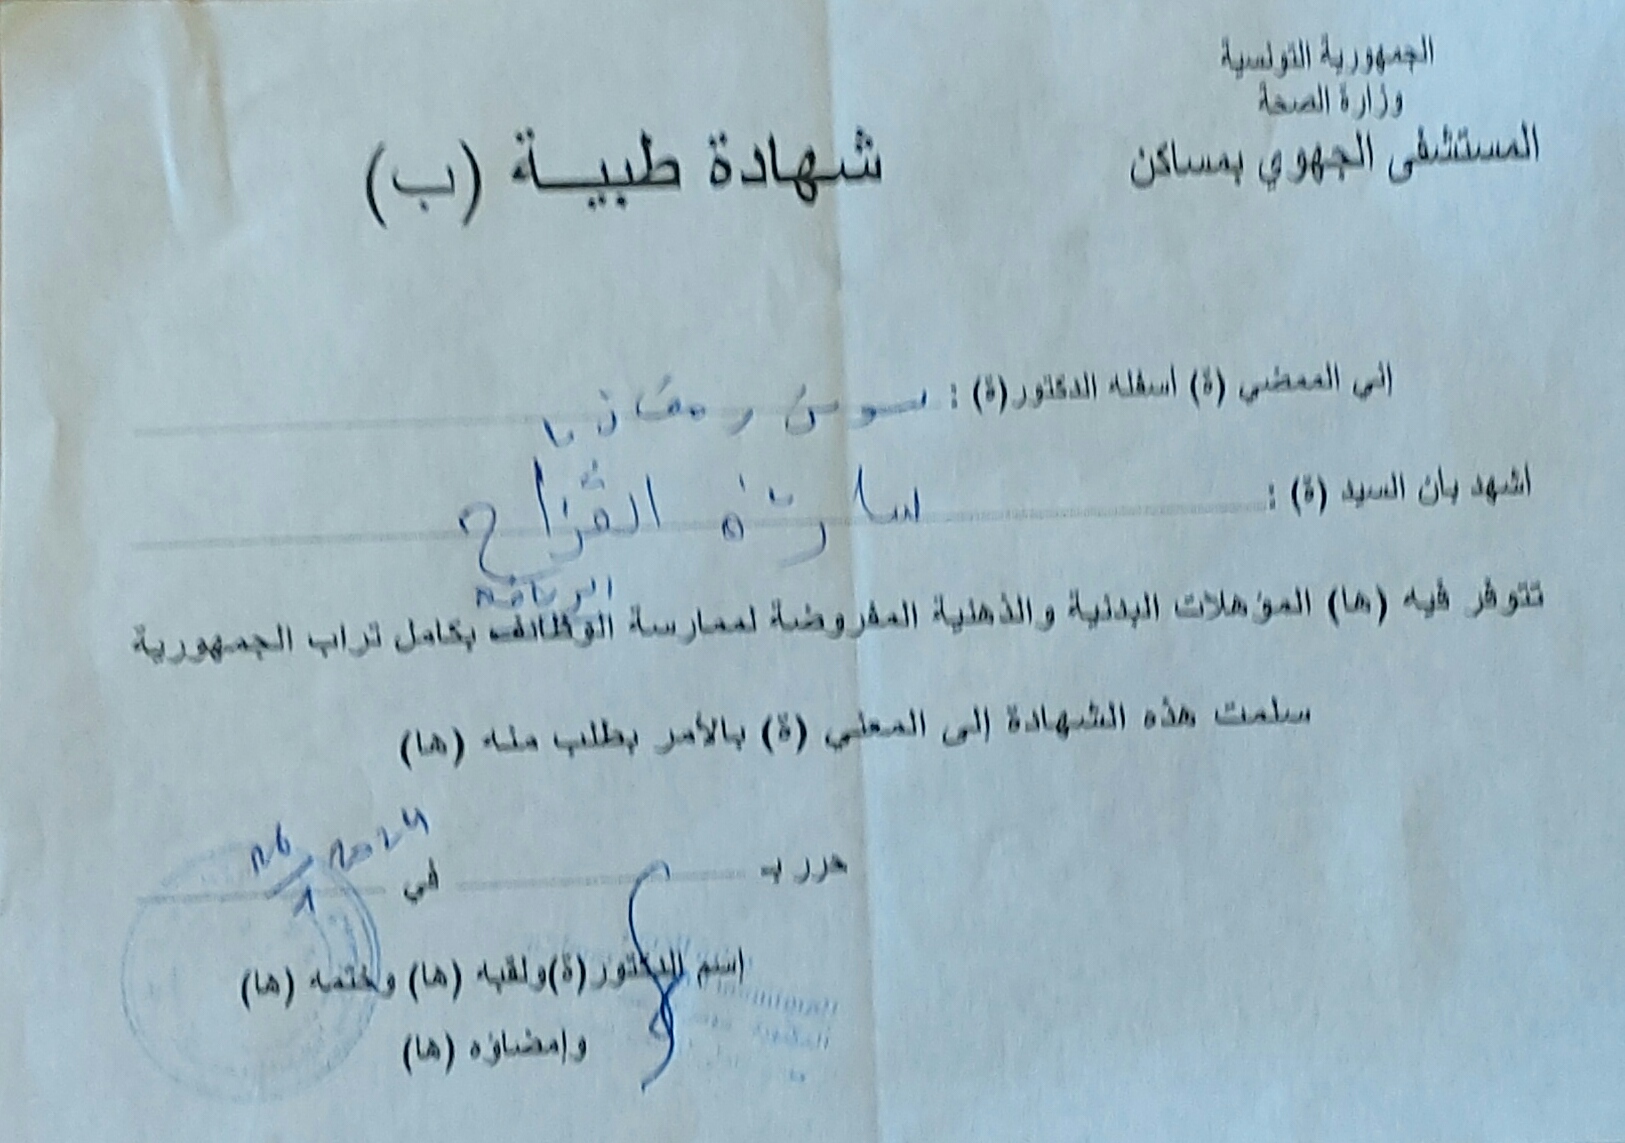 الجمهورية التونسية
وزارة الصحة
المستشفى الجهوي بمساكن
شهادة طبية (ب)
إني الممضي (ة) أسفله الدكتور(ة) : سوسن رمضان
أشهد بأن السيد (ة) : سارة الفراح
الرياضة
تتوفر فيه (ها) المؤهلات البدنية والذهنية المفروضة لممارسة الوظائف بكامل تراب الجمهورية
سلمت هذه الشهادة إلى المعني (ة) بالأمر بطلب منه (ها)
حرر بـ في 26/1 2024
إسم الدكتور(ة)ولقبه (ها) وختمه (ها)
وإمضاؤه (ها)